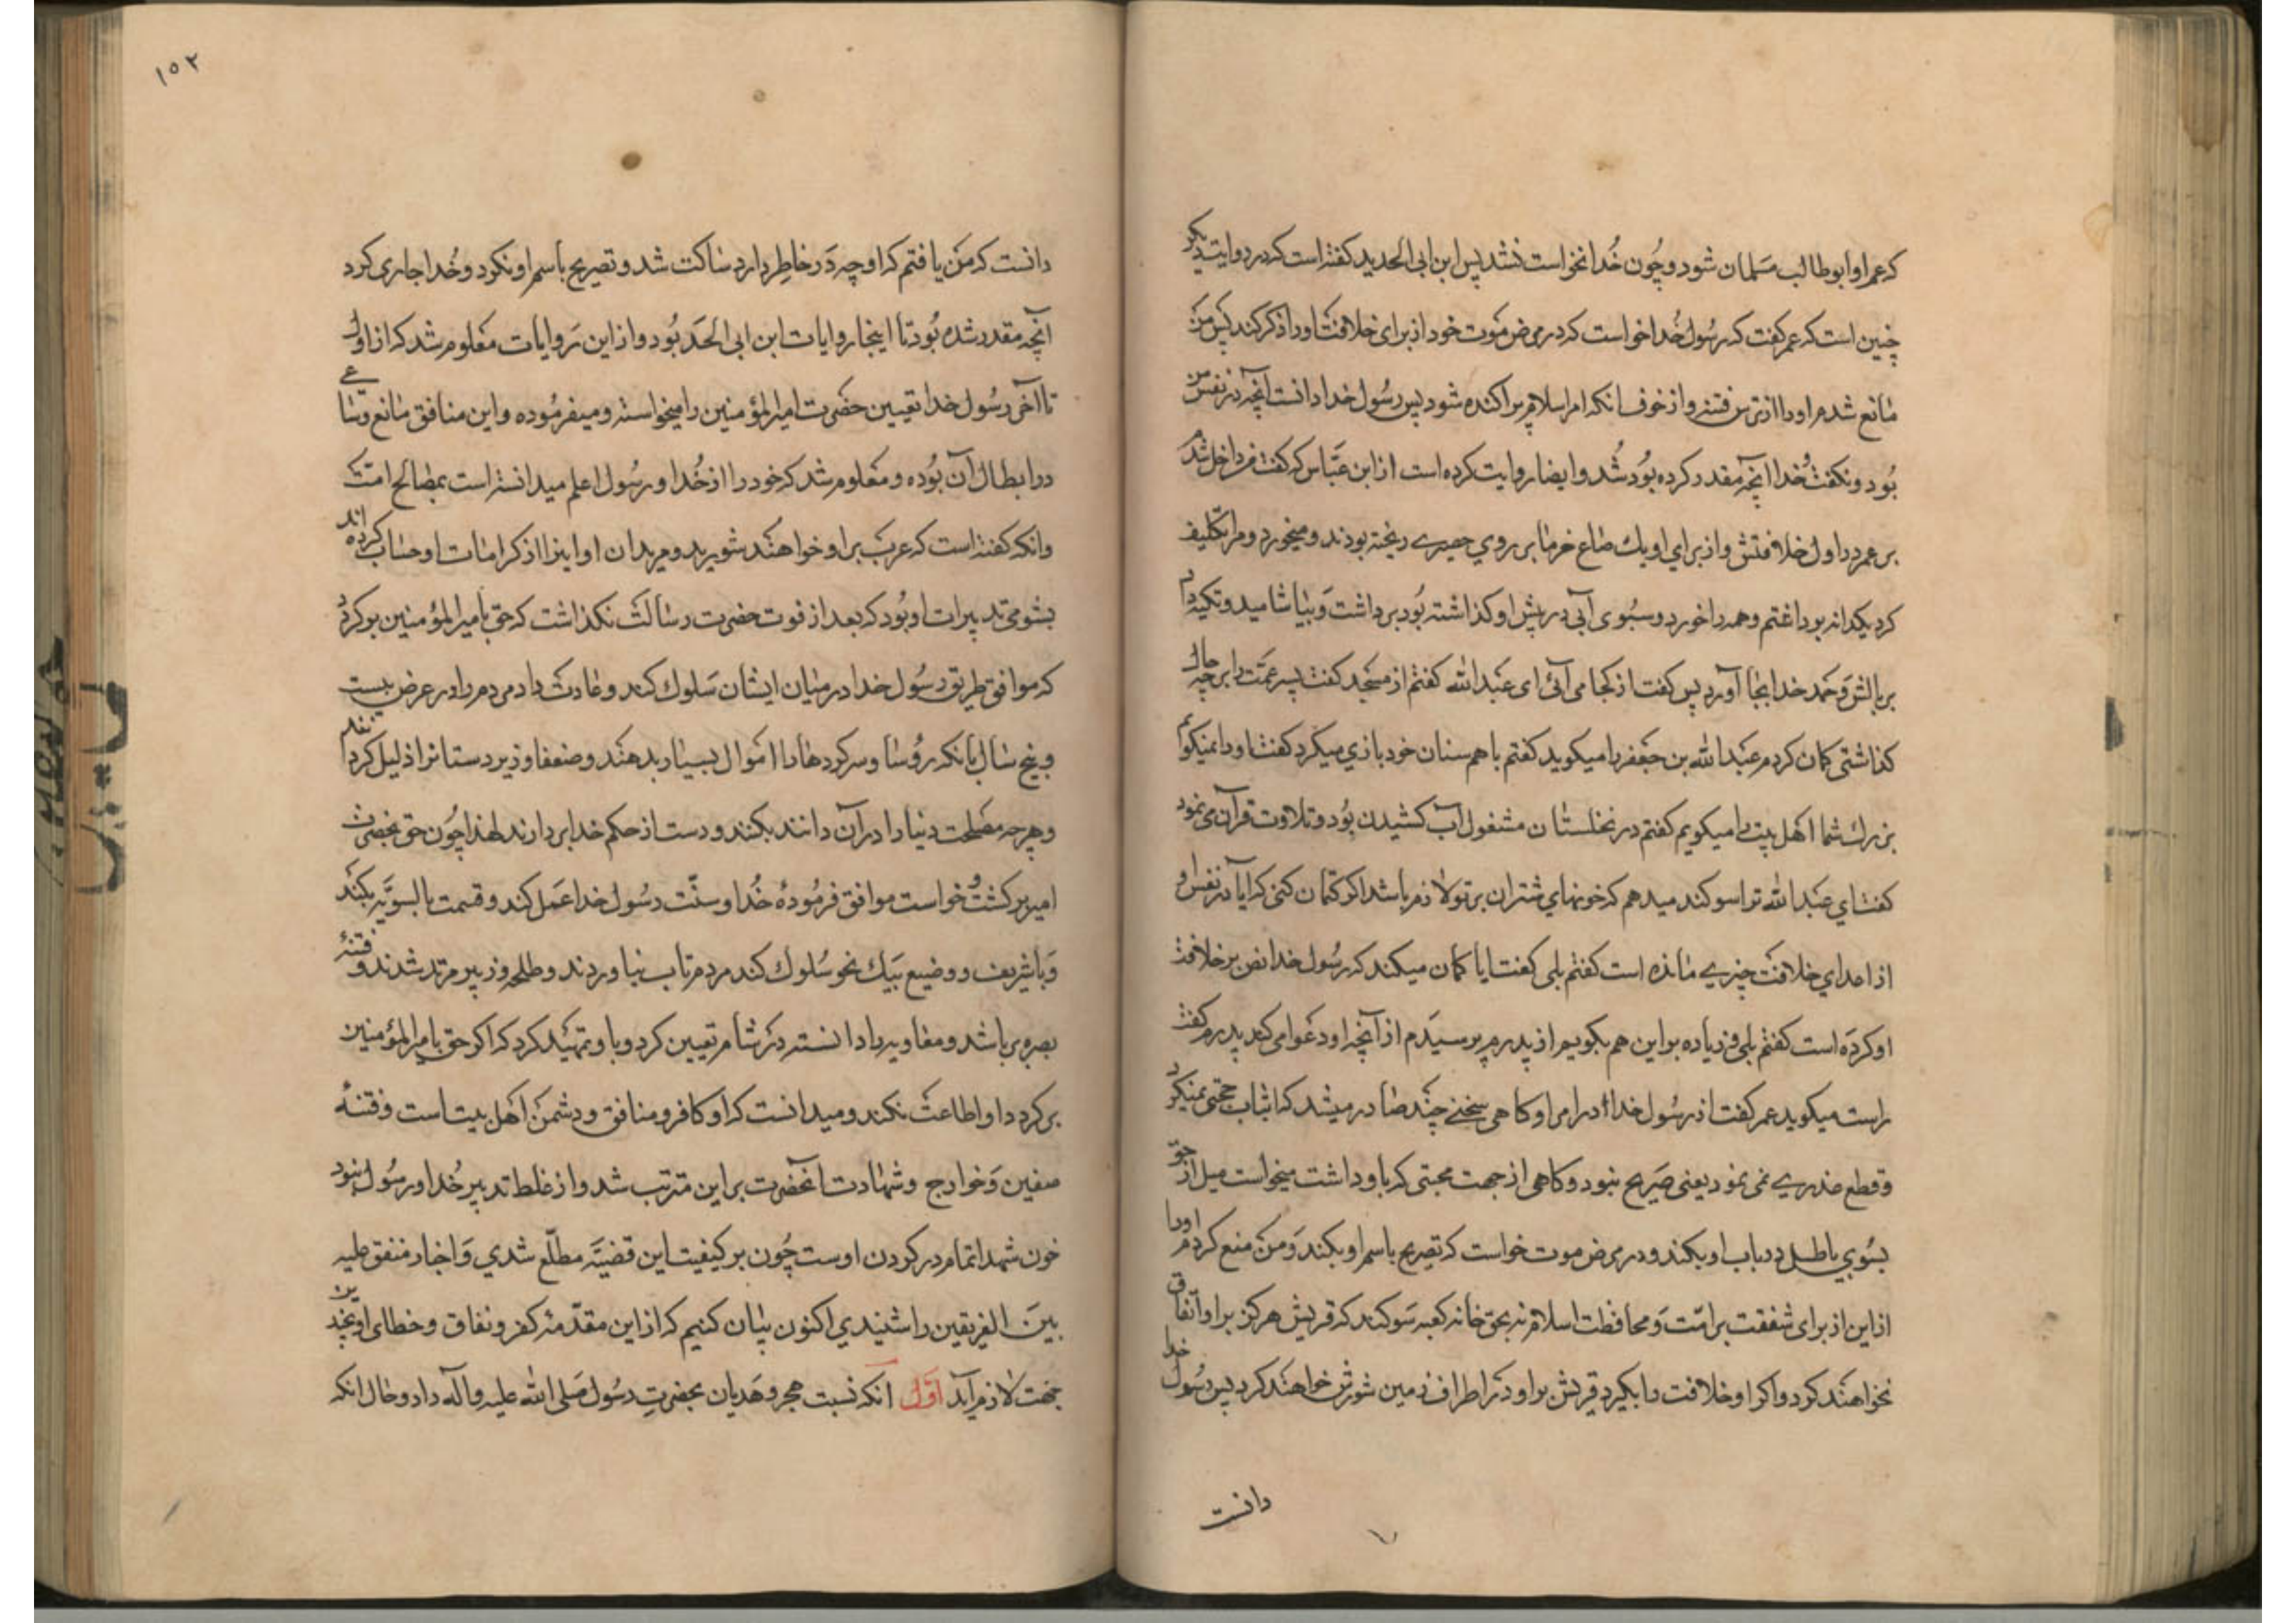 که عم او ابوطالب مسلمان شود و چون خدا نخواست نشد پس ابن ابی الحدید کفته است که در روایت دیکر
چنین است که عمر کفت که رسول خدا خواست که در مرض موت خود از برای خلافت او را ذکر کند پس من
مانع شدم او را از ترس فتنه و از خوف انکه امر اسلام پراکنده شود پس رسول خدا دانست آنچه در نفس من
بود و نکفت و خدا انچه مقدر کرده بود شد و ایضا روایت کرده است از ابن عباس که کفت من داخل شدم
بر عمر در اول خلافتش و از برای او یك صاع خرما بر روی حصیری ریخته بودند و میخورد و مرا تکلیف
کرد یکدانه برداشتم و همه را خورد و سبوی آبی در پیش او کذاشته بود برداشت و بیاشامید و تکیه داد
بر بالش و حمد خدا بجا آورد پس کفت از کجا می آئی ای عبد الله کفتم از مسجد کفت پسر عمت را بر چه حال
کذاشتی کمان کردم عبد الله بن جعفر را میکوید کفتم با هم سنان خود بازی میکرد کفت او را نمیکویم
بزرك شما اهل بیت را میکویم کفتم در نخلستان مشغول آب کشیدن بود و تلاوت قرآن می نمود
کفت ای عبد الله ترا سوکند میدهم که خونهای شتران بر تو لازم باشد اکر کتمان کنی که ایا در نفس او
از ادعای خلافت چیزی مانده است کفتم بلی کفت ایا کمان میکند که رسول خدا نص بر خلافت
او کرده است کفتم بلی و زیاده بر این هم بکویم از پدرم پرسیدم از آنچه او دعوا می کند پدرم کفت
راست میکوید عمر کفت از رسول خدا در امر او کاهی سخنی چند صادر میشد که اثبات حجتی نمیکرد
و قطع عذری نمی نمود یعنی صریح نبود و کاهی از جهت محبتی که باو داشت میخواست میل از حق
بسوی باطل در باب او بکند و در مرض موت خواست که تصریح باسم او بکند و من منع کردم او را
از این از برای شفقت بر امت و محافظت اسلام نه بحق خانه کعبه سوکند که قریش هرکز بر او اتفاق
نخواهند کرد و اکر او خلافت را بکیرد قریش بر او در اطراف زمین شورش خواهند کرد پس رسول خدا
دانست
١٥٢
دانست که من یافتم که او چه در خاطر دارد ساکت شد و تصریح باسم او نکرد و خدا جاری کرد
آنچه مقدر شده بود تا اینجا روایات ابن ابی الحدید بود و از این روایات معلوم شد که از اول
تا آخر رسول خدا تعیین حضرت امیر المؤمنین را میخواسته و میفرموده و این منافق مانع و ساعی
در ابطال آن بوده و معلوم شد که خود را از خدا و رسول اعلم میدانسته است بمصالح امت
وانکه کفته است که عرب بر او خواهند شورید و مریدان او اینرا از کرامات او حساب کرده اند
بشومی تدبیرات او بود که بعد از فوت حضرت رسالت نکذاشت که حق بامیر المؤمنین برکردد
که موافق طریق رسول خدا در میان ایشان سلوك کند و عادت داد مردم را در عرض بیست
و پنج سال بانکه رؤسا و سرکردها را اموال بسیار بدهند و ضعفا و زیردستانرا ذلیل کردانند
و هرچه مصلحت دنیا را در آن دانند بکنند و دست از حکم خدا بردارند لهذا چون حق بحضرت
امیر برکشت و خواست موافق فرموده خدا و سنت رسول خدا عمل کند و قسمت بالسویه بکند
و با شریف و وضیع بیك نحو سلوك کند مردم تاب نیاوردند و طلحه و زبیر مرتد شدند و فتنه
بصره برپا شد و معاویه را دانسته در شام تعیین کرد و با و تمهید کرد که اکر حق بامیر المؤمنین
برکردد او اطاعت نکند و میدانست که او کافر و منافق و دشمن اهل بیت است و فتنه
صفین و خوارج و شهادت آنحضرت بر این مترتب شد و از غلط تدبیر خدا و رسول نبود
خون شهدا تمام در کردن اوست چون بر کیفیت این قضیه مطلع شدی و اخبار متفق علیه
بین الفریقین را شنیدی اکنون بیان کنیم که از این مقدمه کفر و نفاق و خطای او بچندین
جهت لازم آید اول انکه نسبت هجر و هذیان بحضرت رسول صلی الله علیه و آله داد و حال انکه